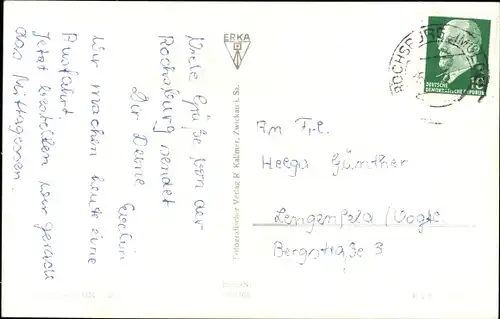 Viele Grüße von der
Rochsburg sendet
Dir Deine
Wir machen heute eine
Ausfahrt.
Jetzt bestellen wir gerade
das Mittagessen.
ERKA
Fotografischer Verlag R. Kallmer, Zwickau i. Sa.
ROCHSBURG
10
DEUTSCHE
DEMOKRATISCHE REPUBLIK
An Frl.
Helga Günther
Lengenfeld /Vogtl.
Bergstraße 3